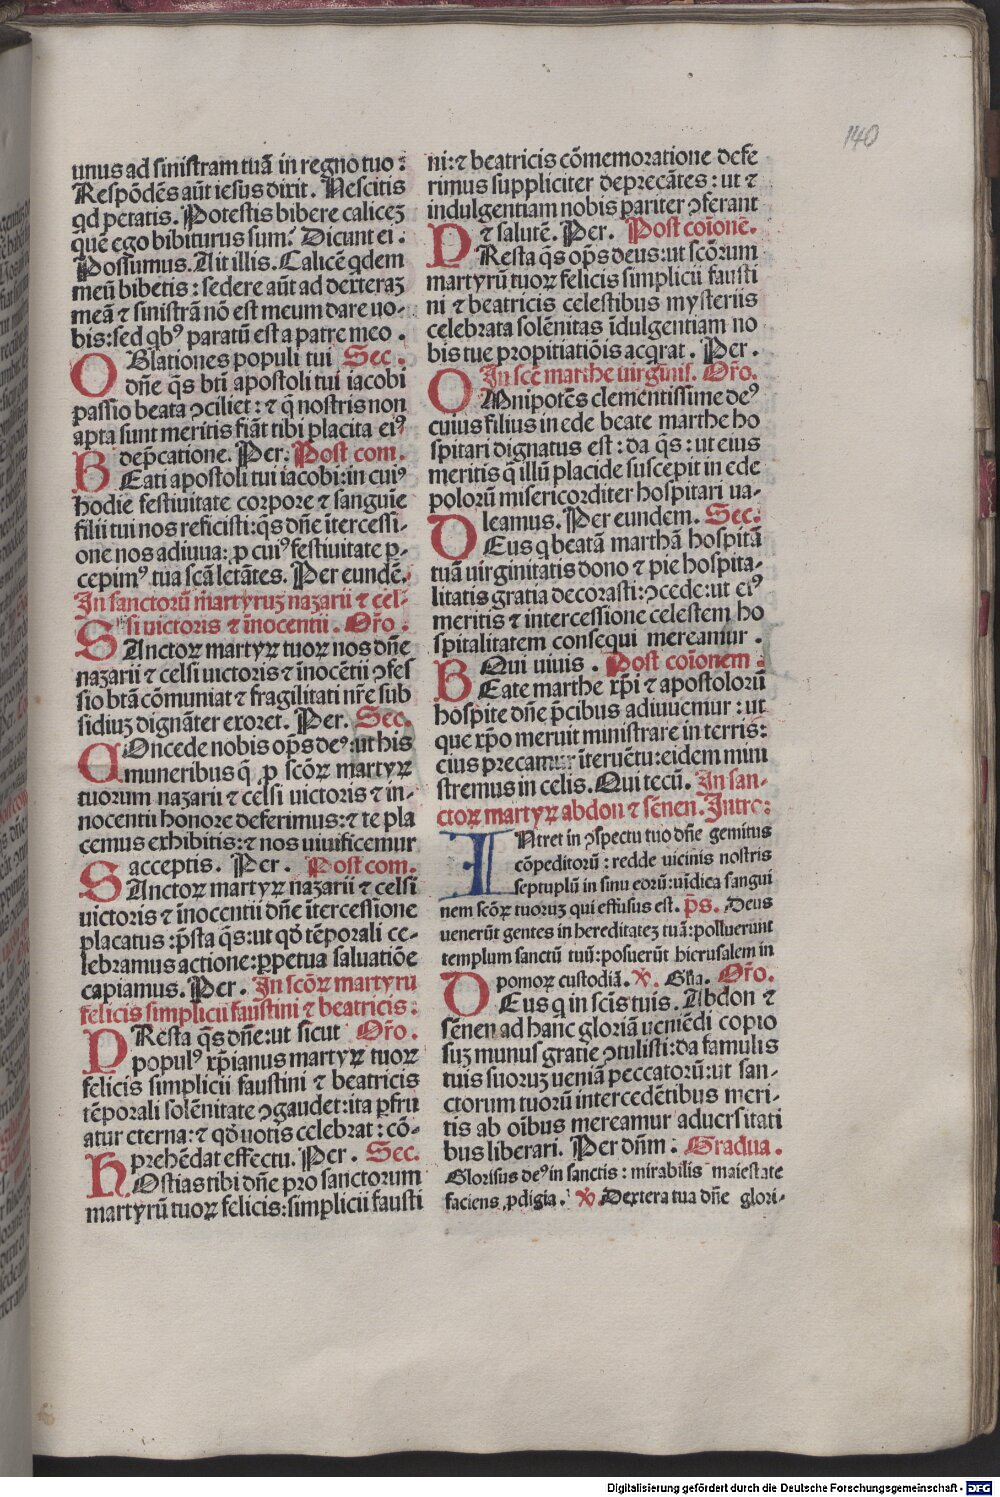 140
unus ad sinistram tuā in regno tuo:
Respōdēs aūt iesus dixit. Nescitis
qd petatis. Potestis bibere calicez
quē ego bibiturus sum? Dicunt ei.
Possumus. Ait illis. Calicē qdem
meū bibetis: sedere aūt ad dexteraz
meā ⁊ sinistrā nō est meum dare uo-
bis: sed qbꝰ paratū est a patre meo.
OBlationes populi tui Sec.
dn̄e q̄s bt̄i apostoli tui iacobi
passio beata ꝯciliet: ⁊ q̄ nostris non
apta sunt meritis fiāt tibi placita eiꝰ
dep̄catione. Per. Post com.
BEati apostoli tui iacobi: in cuiꝰ
hodie festiuitate corpore ⁊ sanguie
filii tui nos reficisti: q̄s dn̄e ītercessi-
one nos adiuua: ꝓ cuiꝰ festiuitate ꝑ-
cepimꝰ tua scā letātes. Per eundē.
In sanctorū martyruz nazarii ⁊ cel-
si uictoris ⁊ īnocentii. Or̄o.
SAnctoꝝ martyꝝ tuoꝝ nos dn̄e
nazarii ⁊ celsi uictoris ⁊ īnocētii ꝯfes
sio btā cōmuniat ⁊ fragilitati nr̄e sub
sidiuz dignāter exoret. Per. Sec.
COncede nobis op̄s deꝰ: ut his
muneribus q̄ ꝓ scōꝝ martyꝝ
tuorum nazarii ⁊ celsi uictoris ⁊ in-
nocentii honore deferimus: ⁊ te pla
cemus exhibitis: ⁊ nos uiuificemur
acceptis. Per. Post com.
SAnctoꝝ martyꝝ nazarii ⁊ celsi
uictoris ⁊ īnocentii dn̄e ītercessione
placatus: p̄sta q̄s: ut qd̄ tēporali ce-
lebramus actione: ꝑpetua saluatiōe
capiamus. Per. In scōꝝ martyru
felicis simplicii faustini ⁊ beatricis:
PResta q̄s dn̄e: ut sicut Or̄o.
populꝰ xp̄ianus martyꝝ tuoꝝ
felicis simplicii faustini ⁊ beatricis
tēporali solēnitate ꝯgaudet: ita ꝑfru
atur eterna: ⁊ qd̄ uotis celebrat: cō-
prehēdat effectu. Per. Sec.
HOstias tibi dn̄e pro sanctorum
martyrū tuoꝝ felicis: simplicii fausti
ni: ⁊ beatricis cōmemoratione defe
rimus suppliciter deprecātes: ut ⁊
indulgentiam nobis pariter ꝯferant
⁊ salutē. Per. Post coīonē.
PResta q̄s op̄s deus: ut scōrum
martyrū tuoꝝ felicis simplicii fausti
ni ⁊ beatricis celestibus mysteriis
celebrata solēnitas īdulgentiam no
bis tue propitiatiōis acqrat. Per.
In scē marthe uirginis. Or̄o.
OMnipotēs clementissime deꝰ
cuius filius in ede beate marthe ho
spitari dignatus est: da q̄s: ut eius
meritis q̄ illū placide suscepit in ede
polorū misericorditer hospitari ua-
leamus. Per eundem. Sec.
DEus q beatā marthā hospitā
tuā uirginitatis dono ⁊ pie hospita-
litatis gratia decorasti: ꝯcede: ut eiꝰ
meritis ⁊ intercessione celestem ho
spitalitatem consequi mereamur.
Qui uiuis. Post coīonem.
BEate marthe xp̄i ⁊ apostolorū
hospite dn̄e p̄cibus adiuuemur: ut
que xp̄o meruit ministrare in terris:
eius precamur īteruētu: eidem mini
stremus in celis. Qui tecū. In san-
ctoꝝ martyꝝ abdon ⁊ sēnen. Intro:
INtret in ꝯspectu tuo dn̄e gemitus
cōpeditorū: redde uicinis nostris
septuplū in sinu eorū: uīdica sangui
nem scōꝝ tuoruz qui effusus est. p̄s. Deus
uenerūt gentes in hereditatez tuā: polluerunt
templum sanctū tuū: posuerūt hierusalem in
pomoꝝ custodiā. ℣. Gl̄ia. Or̄o.
DEus q in scīs tuis. Abdon ⁊
sēnen ad hanc gloriā ueniēdi copio
suz munus gratie ꝯtulisti: da famulis
tuis suoruz ueniā peccatorū: ut san-
ctorum tuorū intercedētibus meri-
tis ab oībus mereamur aduersitati
bus liberari. Per dn̄m. Gradua.
Gloriosus deꝰ in sanctis: mirabilis maiestate
faciens ꝓdigia. ℣. Dextera tua dn̄e glori-
Digitalisierung gefördert durch die Deutsche Forschungsgemeinschaft - DFG